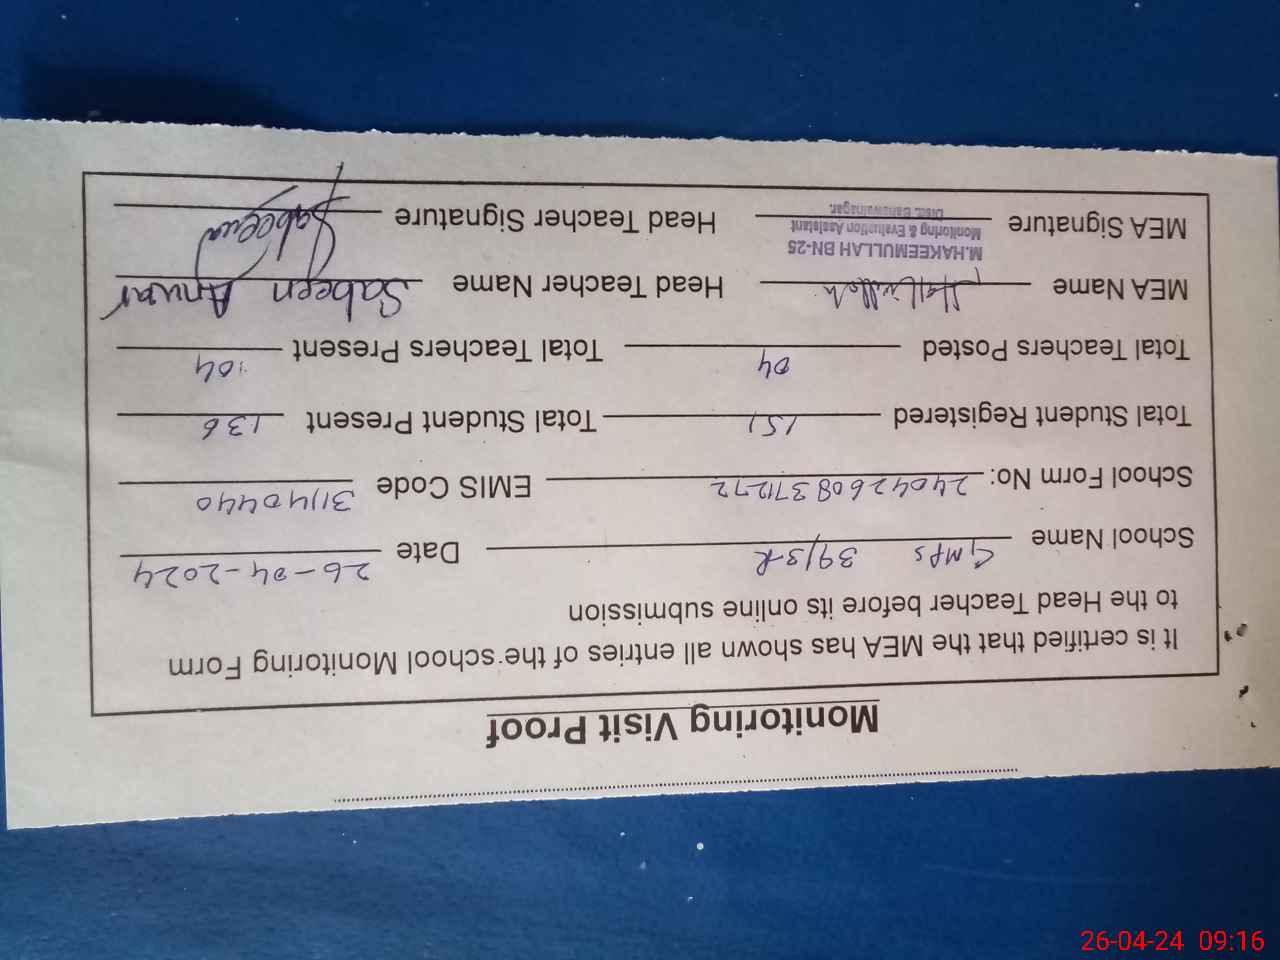 Monitoring Visit Proof
It is certified that the MEA has shown all entries of the school Monitoring Form
to the Head Teacher before its online submission
School Name GMPS 39/3-R Date 26-04-2024
School Form No: 24042608371272 EMIS Code 31140440
Total Student Registered 151 Total Student Present 136
Total Teachers Posted 04 Total Teachers Present 04
MEA Name Head Teacher Name Sabeen Anwar
M.HAKEEMULLAH BN-25
Monitoring & Evaluation Assistant
MEA Signature Distt. Bahawalnagar. Head Teacher Signature Sabeena
26-04-24 09:16